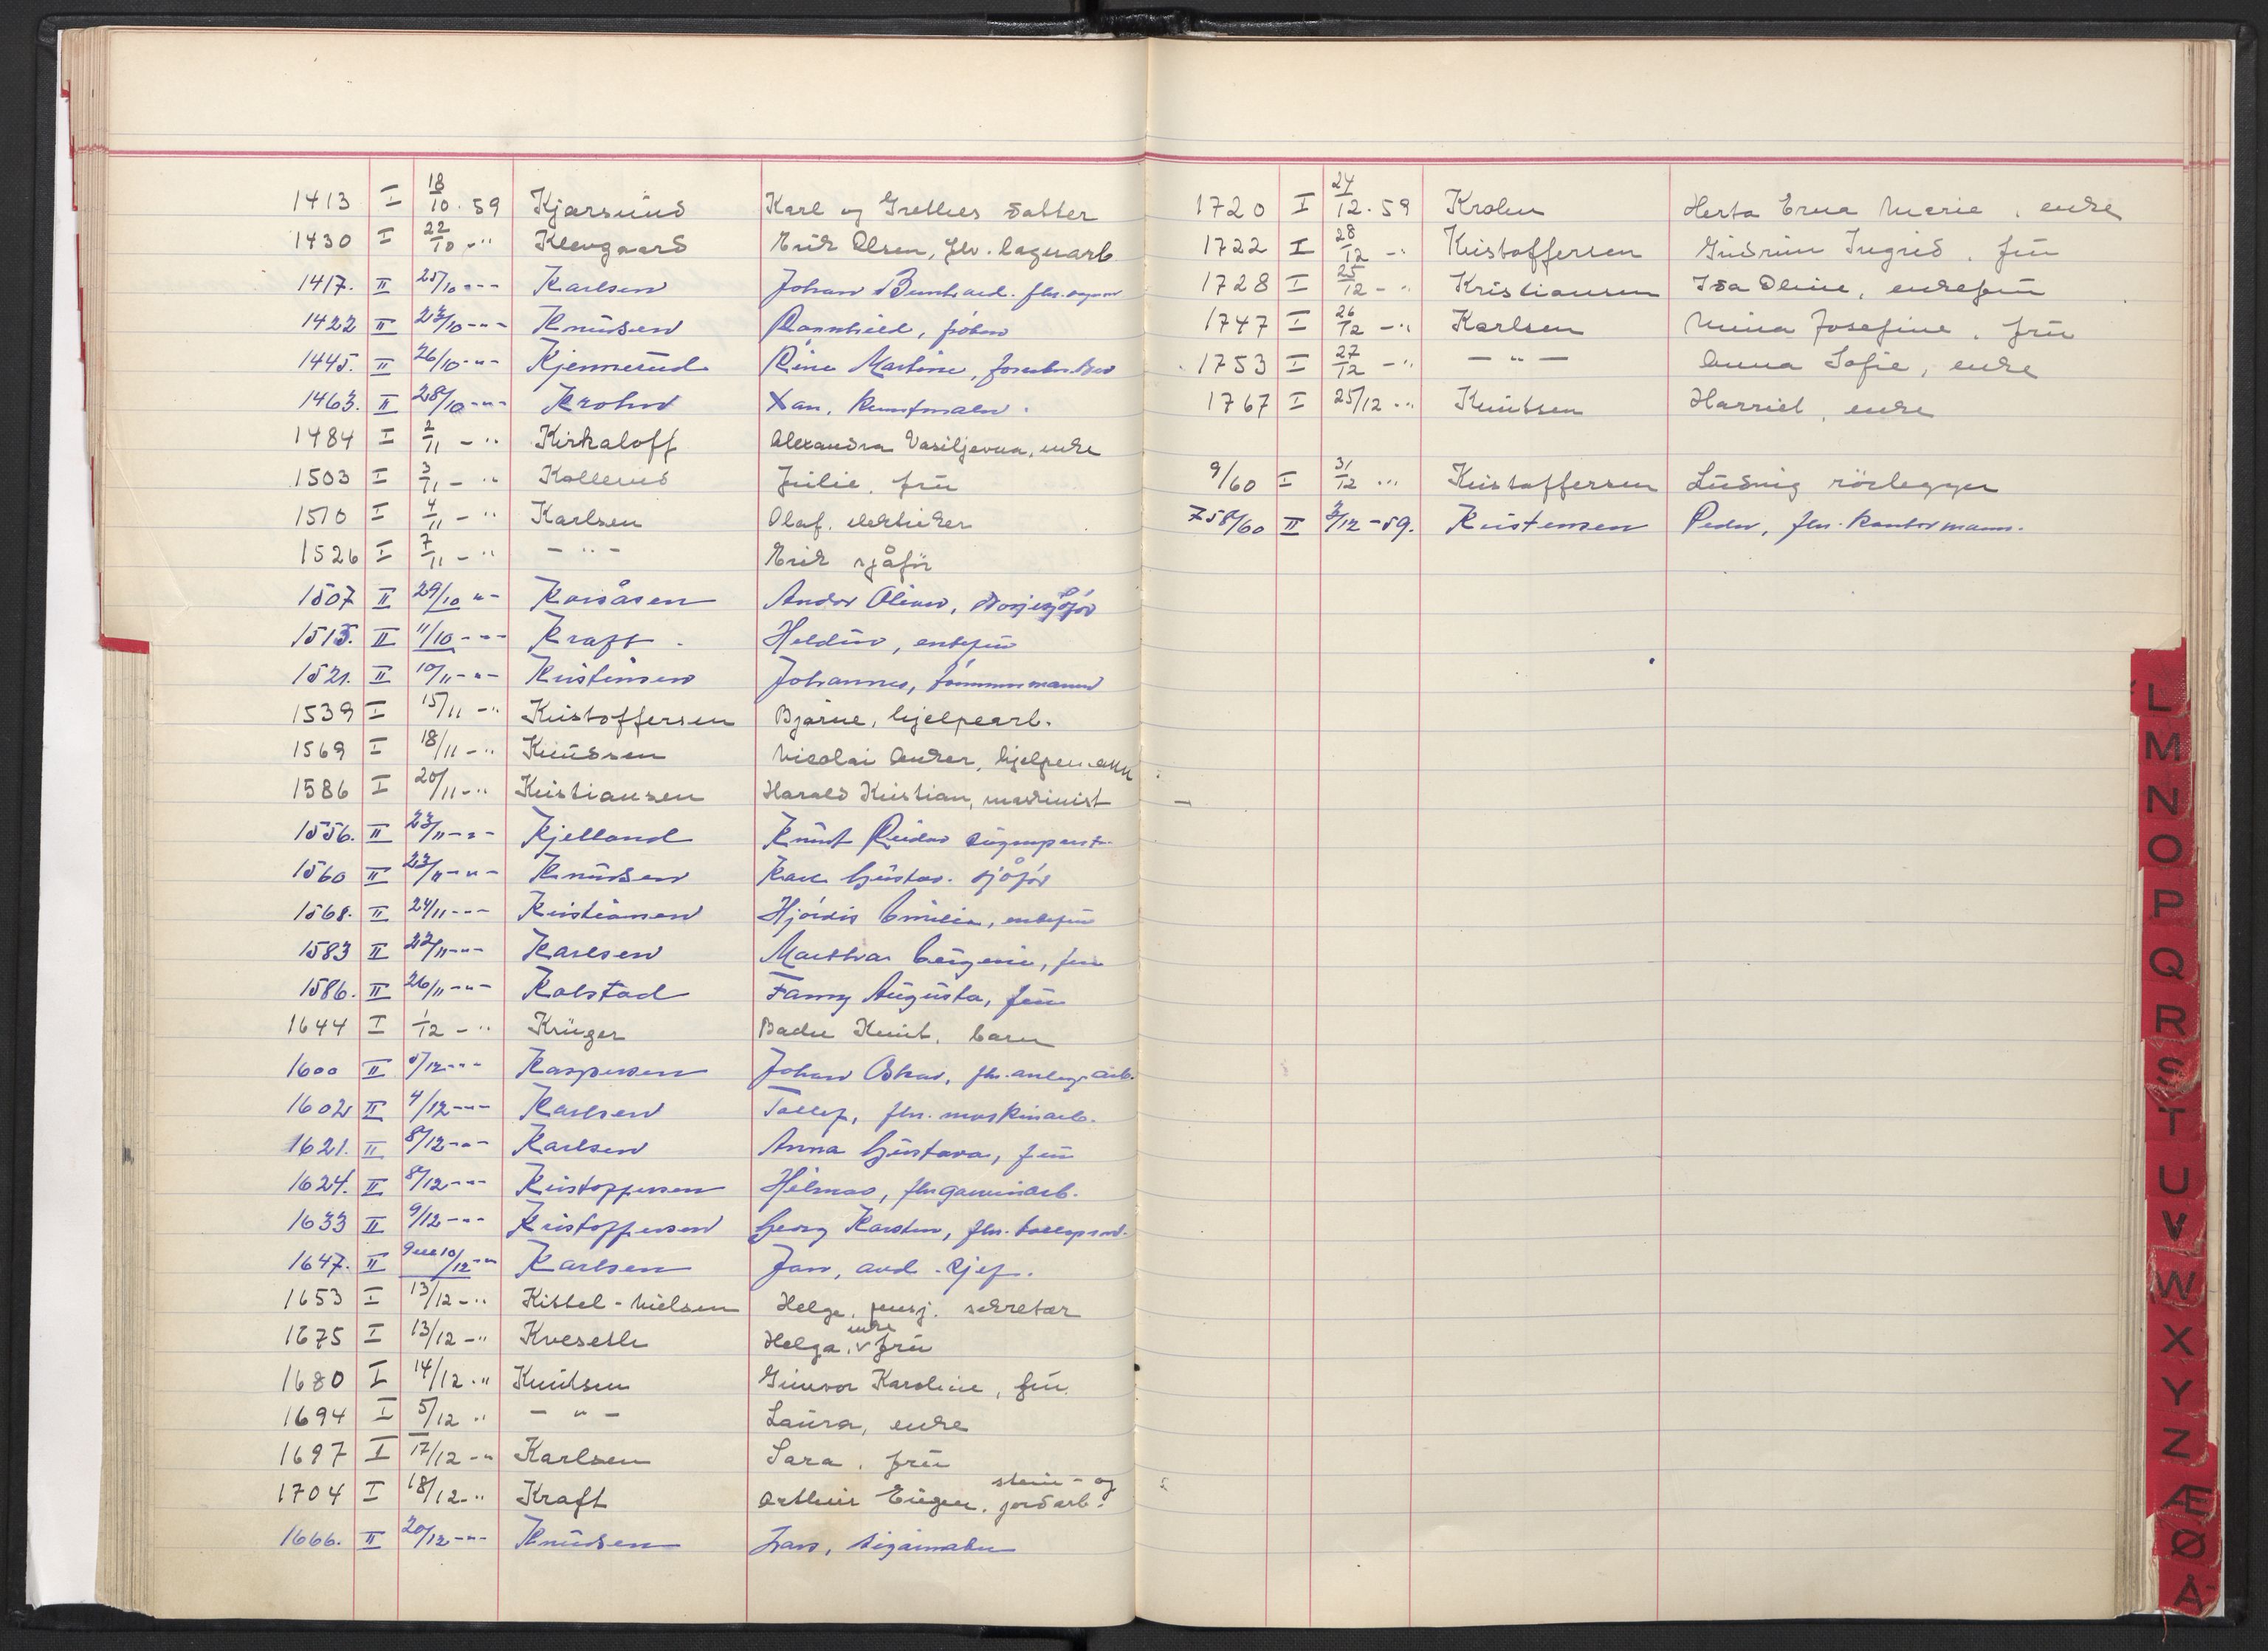 1413 I 18/10.59 Kjørsund Karl og Grethes datter
1430 I 22/10 -" Klevgaard Erik Olsen, flv. lagerarb
1417. II 25/10 -"- Karlsen Johan Bernhard. fhv.
1422 II 23/10 -"- Knudsen Rannhild, frøken
1445. II 26/10 -"- Kjennerud Rina Martine,
1463. II 28/10 -"- Krohn Xan, kunstmaler.
1484 I 2/11 -" Kirkaloff Alexandra Vasiljevna, enke
1503 I 3/11 -" Kollerud Julie, fru
1510 I 4/11 -" Karlsen Olaf. elektriker
1526 I 7/11 -" - " - Erik sjåfør
1507 II 29/10 "- Korsåsen Andor Oliver, drosjesjåfør
1515. II 11/10 -"- Kraft. Heldur, enkefru
1521. II 10/11 -"- Kristensen Johannes, tømmermann
1539 I 15/11 -" Kristoffersen Bjarne, hjelpearb.
1569 I 18/11 -" Knudsen Nicolai Anker, hjelpemann
1586 I 20/11 -" Kristiansen Harald Kristian, maskinist
1556. II 23/11 -"- Kjelland Knut Reidar
1560 II 23/11 -"- Knudsen Kåre Gustav. sjåfør
1568. II 24/11 -"- Kristiansen Hjørdis Emilie, enkefru
1583 II 22/11 -"- Karlsen Marthea Eugenie, fru
1586. II 26/11 -"- Kolstad Fanny Augusta, fru
1644 I 1/12 -" Krüger Knut, barn
1600 II 5/12 -"- Kaspersen Johan Oskar, fhv. anlegsarb.
1602 II 4/12 -"- Karlsen Tollef, fhv. maskinarb.
1621. II 8/12 -"- Karlsen Anna Gustava, fru
1624. II 8/12 -"- Kristoffersen Hilmar, fhv garveriarb.
1633 II 9/12 -"- Kristoffersen Georg Karsten, fhv.
1647. II 9 ell 10/12 -"- Karlsen Jan, avd. sjef.
1653 I 13/12 -" Kittel-Nielsen Helge, pensj. sekretær
1675 I 13/12 -" Kveseth Helga, enke fru
1680 I 14/12 ." Knutsen Gunvor Karoline, fru.
1694 I 5/12 " - " - Laura, enke
1697 I 17/12 -" Karlsen Sara, fru
1704 I 18/12 -" Kraft Arthur Eugen, stein- og jordarb.
1666. II 20/12 -"- Knudsen Lars, sigarmaker
1720 I 24/12.59 Krohn Herta Erna Marie, enke
1722 I 28/12 -" Kristoffersen Gudrun Ingrid, fru
1728 I 25/12 -" Kristiansen Ida Oline, enkefru
1747 I 26/12 -" Karlsen Mina Josefine, fru
1753 I 27/12 -" - " - Anna Sofie, enke
1767 I 25/12 -" Knutsen Harriet, enke
9/60 I 31/12 -" Kristoffersen Ludvig rørlegger
758/60 II 3/12 -59. Kristensen Peder, fhv. kontormann.
L
M
N
O
P
Q
R
S
T
U
V
W
X
Y
Z
Æ
Ø
Å